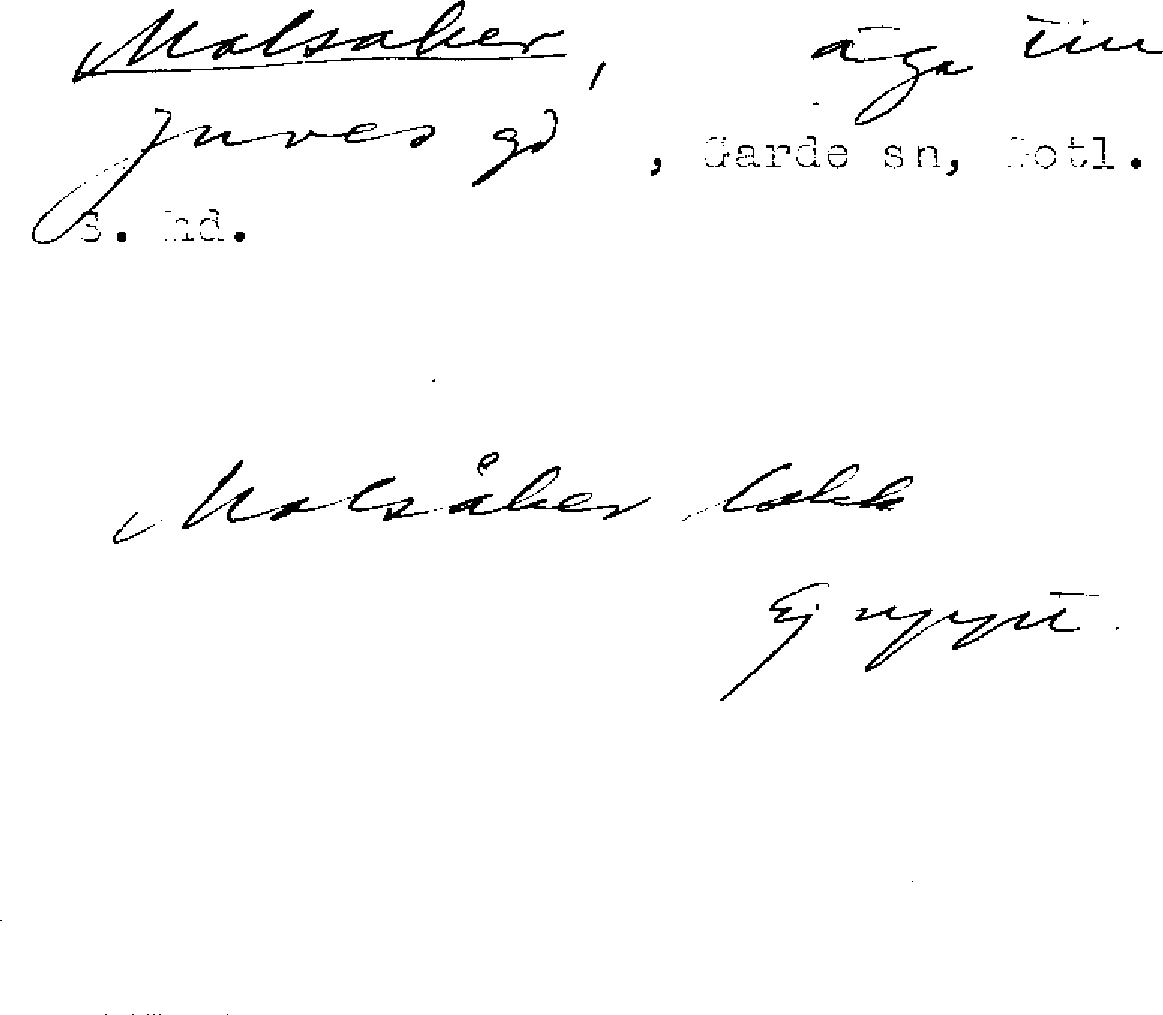 Malsaker, äga till
Juves gd, Garde sn, Gotl.
s. hd.
Malsåker
Ej uppt.